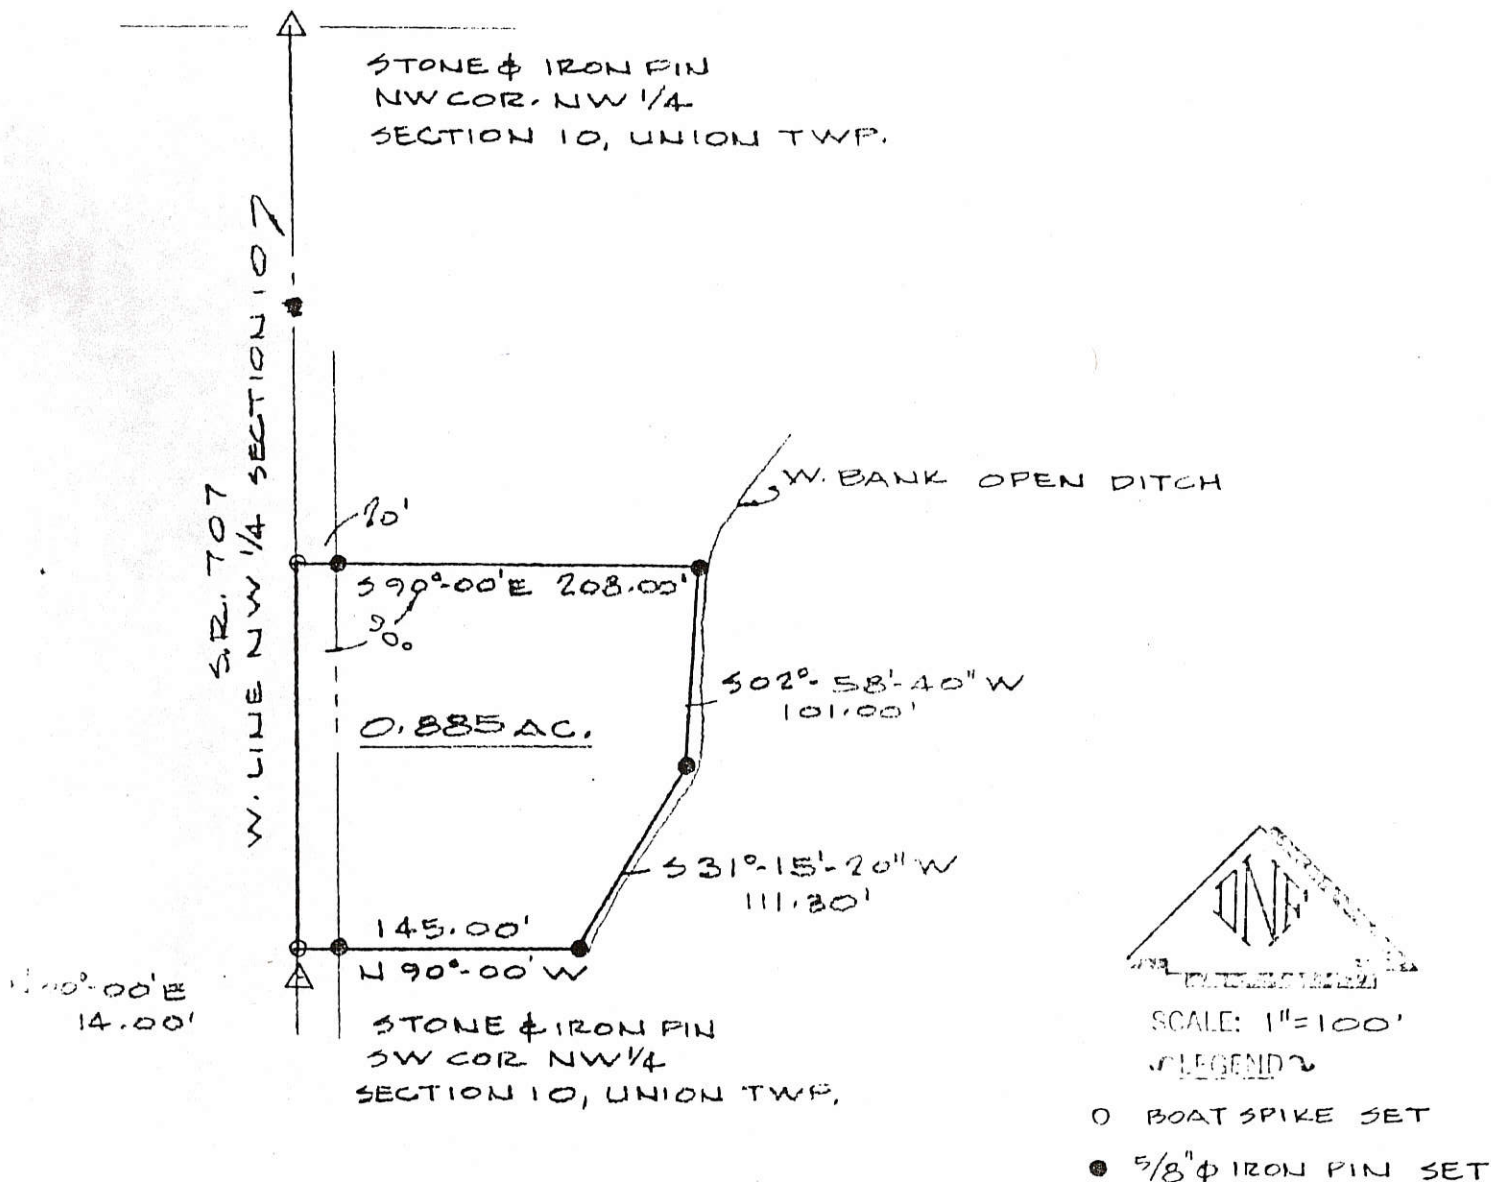 STONE & IRON PIN
NW COR. NW 1/4
SECTION 10, UNION TWP.
S.R. 707
W. LINE NW 1/4 SECTION 10 7
20'
W. BANK OPEN DITCH
S 90°-00' E 208.00'
S 02°-58'-40" W
101.00'
0.885 AC.
S 31°-15'-20" W
111.30'
145.00'
N 90°-00' W
00°-00' E
14.00'
STONE & IRON PIN
SW COR NW 1/4
SECTION 10, UNION TWP.
SCALE: 1"=100'
LEGEND
O BOAT SPIKE SET
● 5/8"ϕ IRON PIN SET